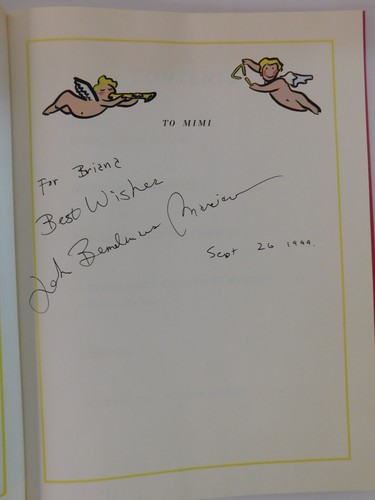 TO MIMI
For Briana
Best Wishes
John Bemelmans Marciano
Sept 26 1999.